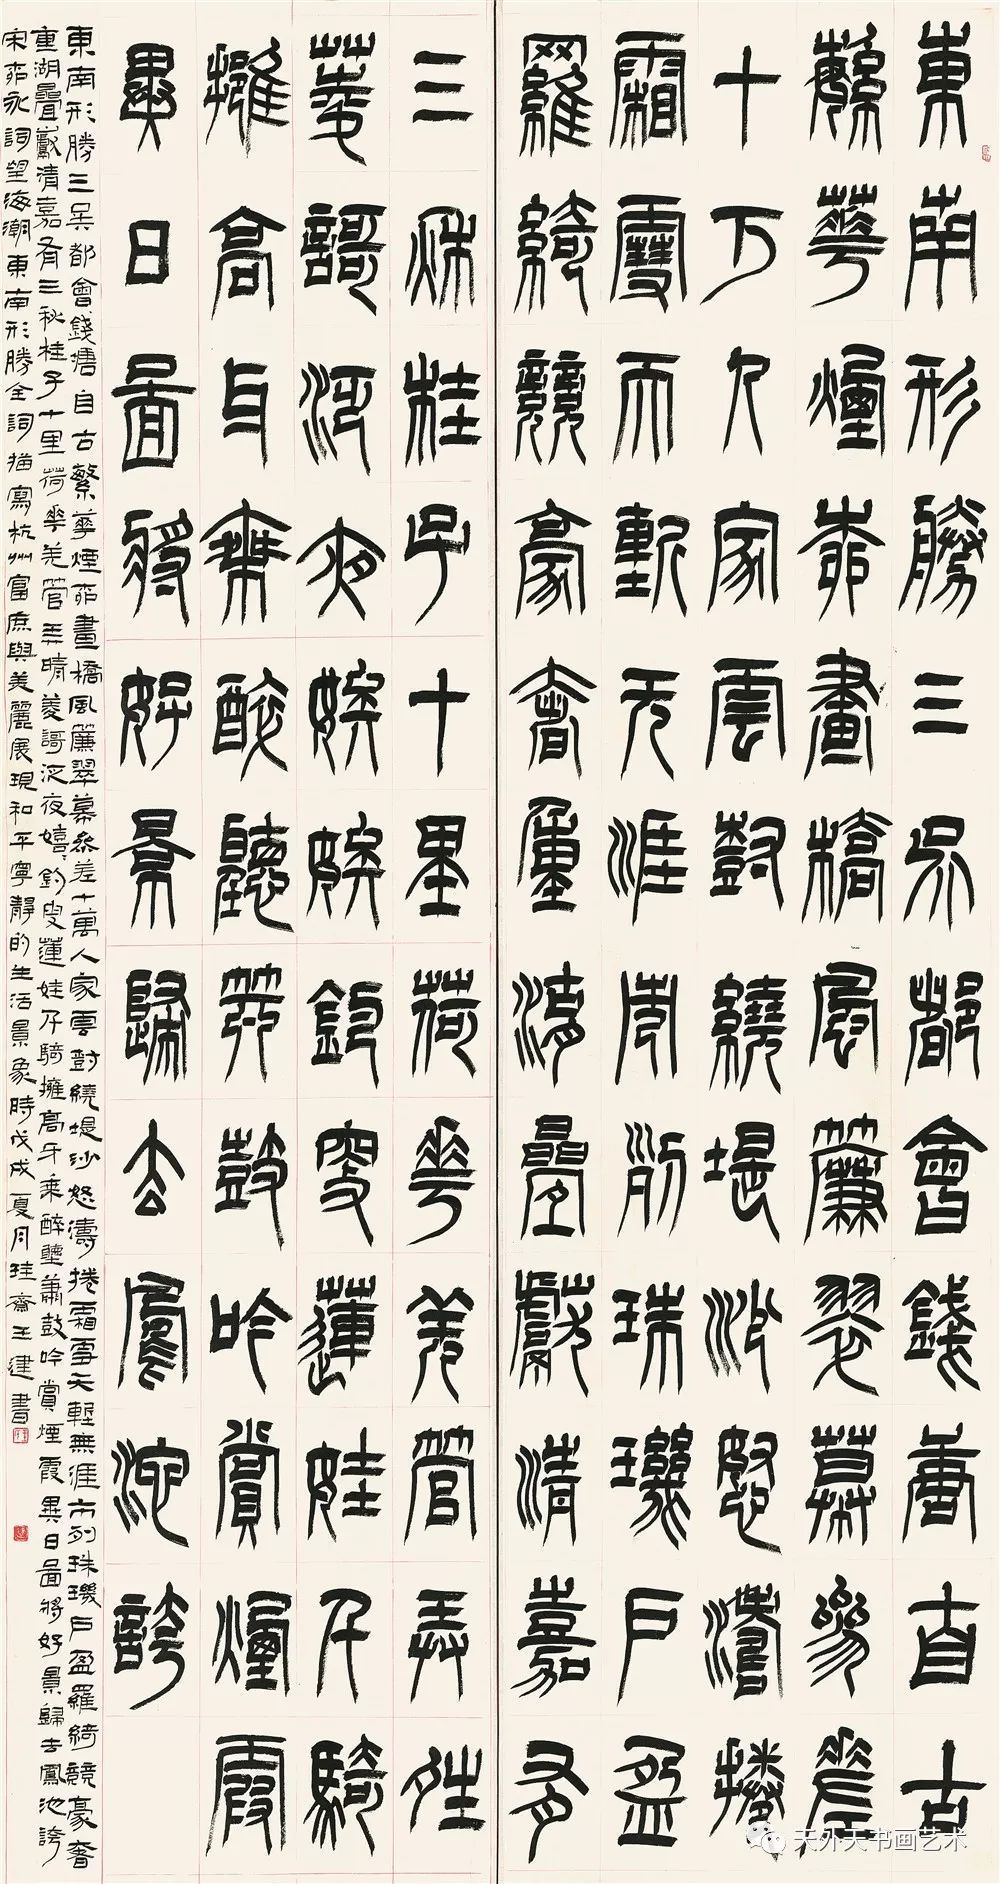 東南形勝三吳都會錢唐自古
繁華煙柳畫橋風簾翠幕參差
十万人家雲尌繞堤沙怒濤捲
霜雪天塹无涯市列珠璣戶盈
羅綺競豪奢重湖疊巘清嘉有
三秋桂子十里荷華羌管弄晴
菱謌泛夜嬉嬉釣叟蓮娃千騎
擁高牙乘醉聽簫鼓吟賞煙霞
異日圖將好景歸去鳳池誇
東南形勝三吳都會錢塘自古繁華煙柳畫橋風簾翠幕參差十萬人家雲尌繞堤沙怒濤捲霜雪天塹無涯市列珠璣戶盈羅綺競豪奢
重湖疊巘清嘉有三秋桂子十里荷華羌管弄晴菱謌泛夜嬉〻釣叟蓮娃千騎擁高牙乘醉聽簫鼓吟賞煙霞異日圖將好景歸去鳳池誇
宋柳永詞望海潮東南形勝全詞描寫杭州富庶與美麗展現和平寧靜的生活景象時戊戌夏月珪齋王建書
天外天书画艺术